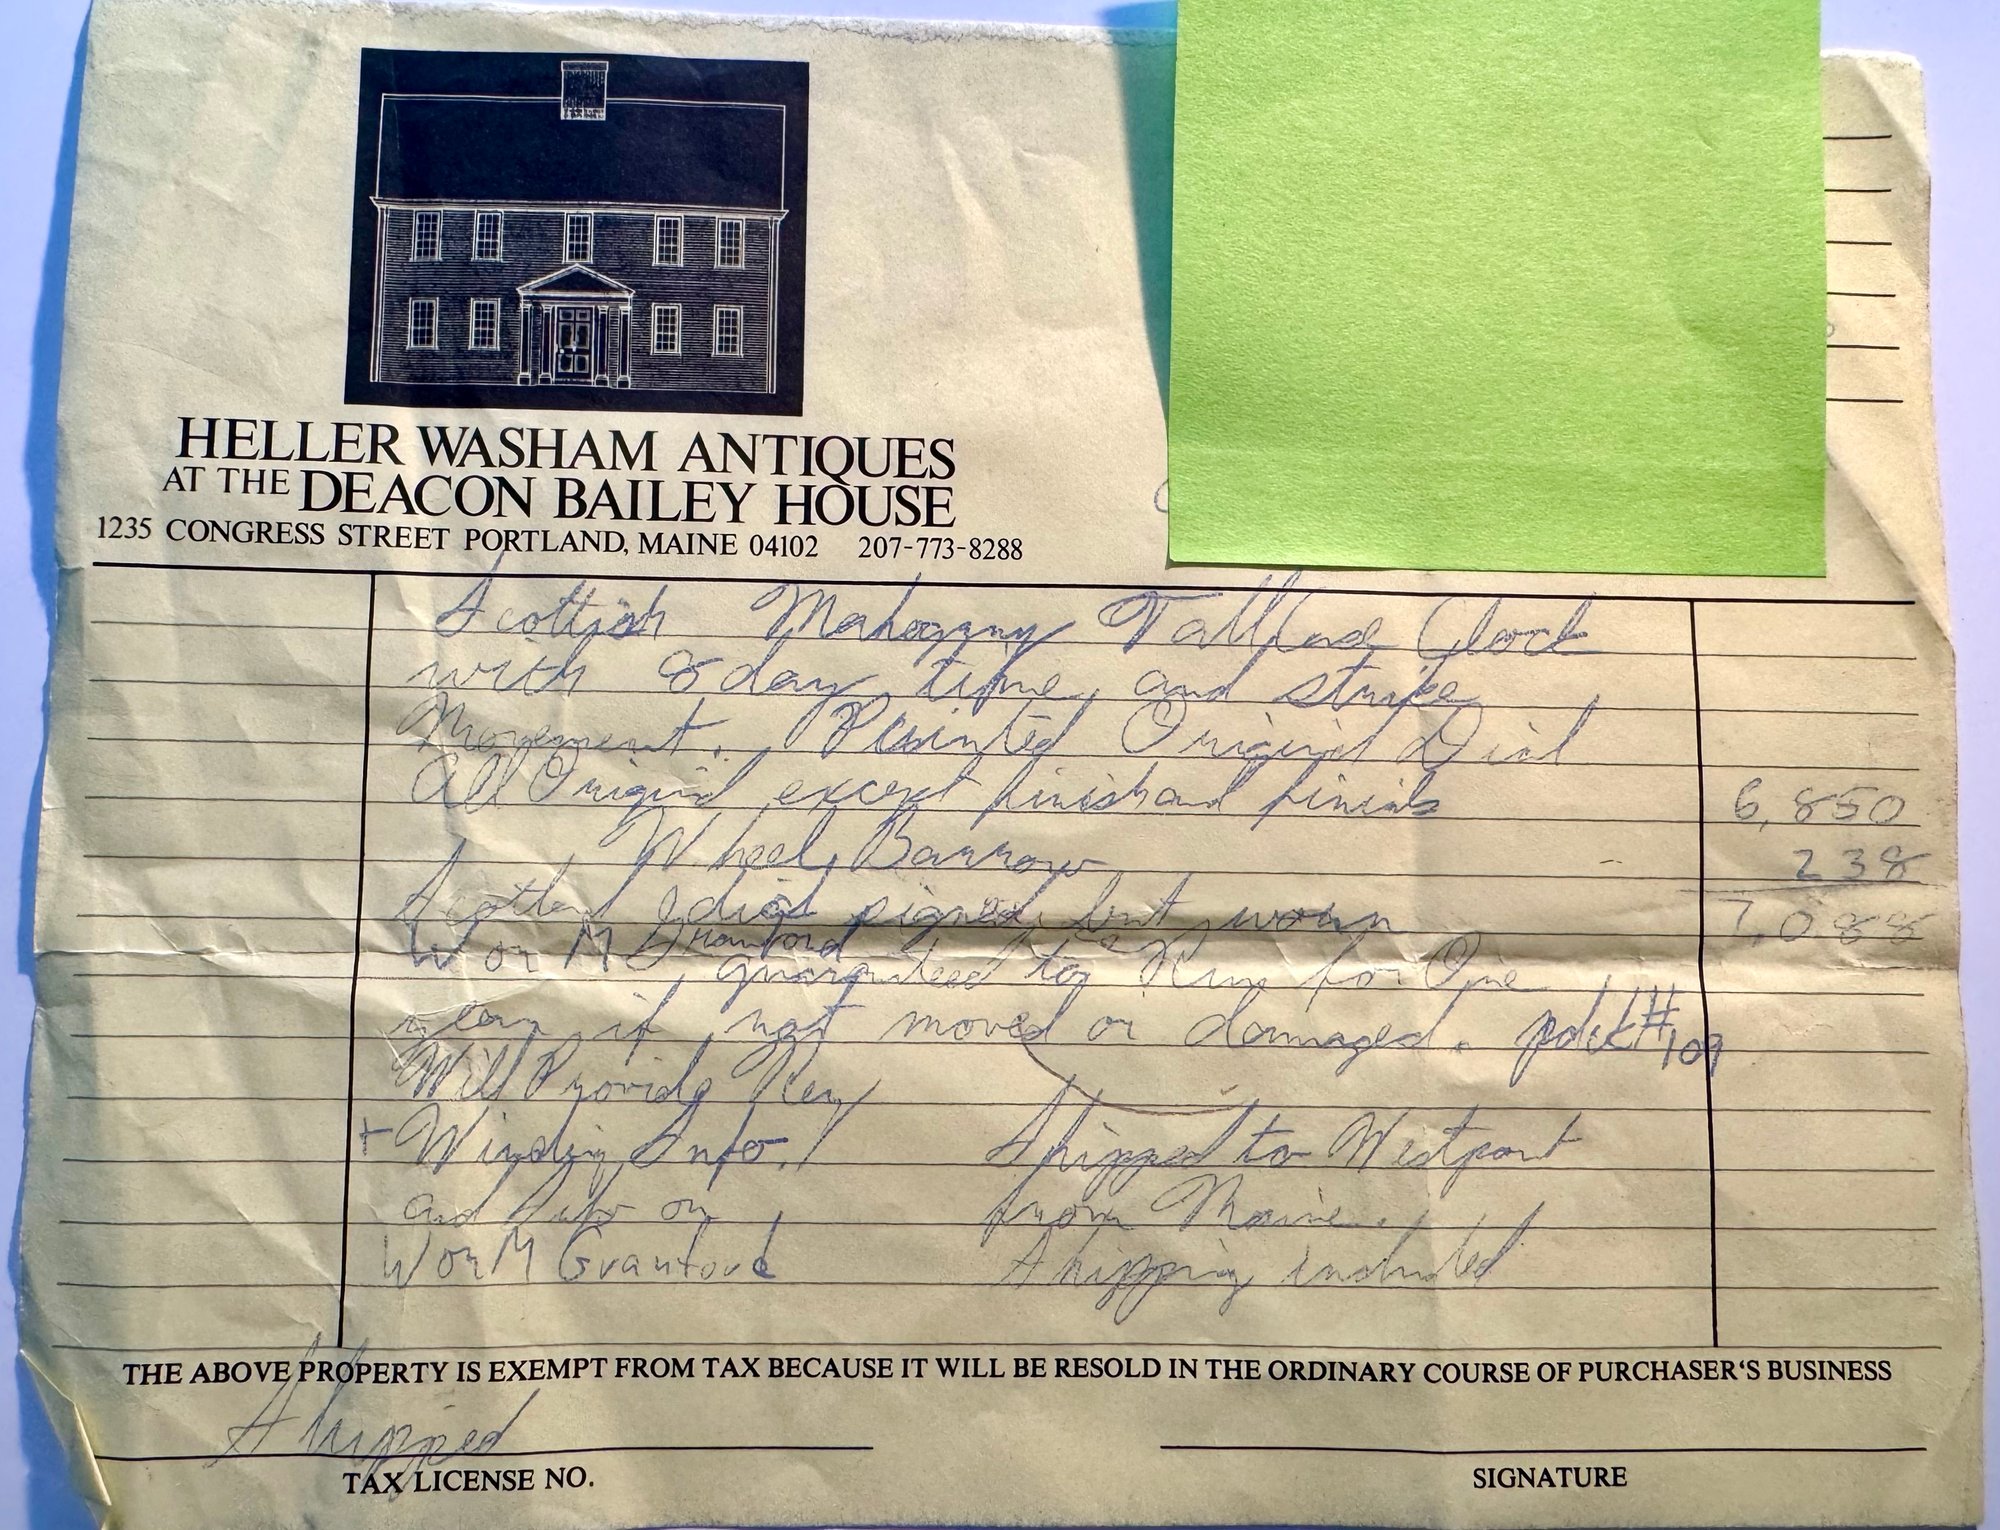 HELLER WASHAM ANTIQUES
AT THE DEACON BAILEY HOUSE
1235 CONGRESS STREET PORTLAND, MAINE 04102 207-773-8288
Scottish Mahogany Tallcase Clock
with 8 day time and strike
Movement. Painted Original Dial
All Original except finish and finials 6,850
Wheel Barrow 238
Scotland dial signed but worn 7,088
Wm M
guaranteed to Run for One
year if not moved or damaged. #109
Will Provide Key
+ Winding Info. Shipped to Westport
and Info on from Maine.
Shipping included
THE ABOVE PROPERTY IS EXEMPT FROM TAX BECAUSE IT WILL BE RESOLD IN THE ORDINARY COURSE OF PURCHASER'S BUSINESS
Shipped
TAX LICENSE NO. SIGNATURE